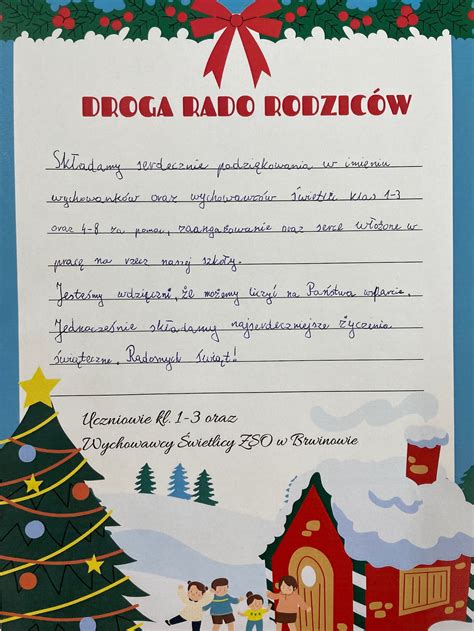 DROGA RADO RODZICÓW
Składamy serdecznie podziękowania w imieniu
wychowanków oraz wychowawców świetlic klas 1-3
oraz 4-8 za pomoc, zaangażowanie oraz serce włożone w
pracę na rzecz naszej szkoły.
Jesteśmy wdzięczni, że możemy liczyć na Państwa wsparcie.
Jednocześnie składamy najserdeczniejsze życzenia
świąteczne. Radosnych Świąt!
Uczniowie kl. 1-3 oraz
Wychowawcy Świetlicy ZSO w Brwinowie